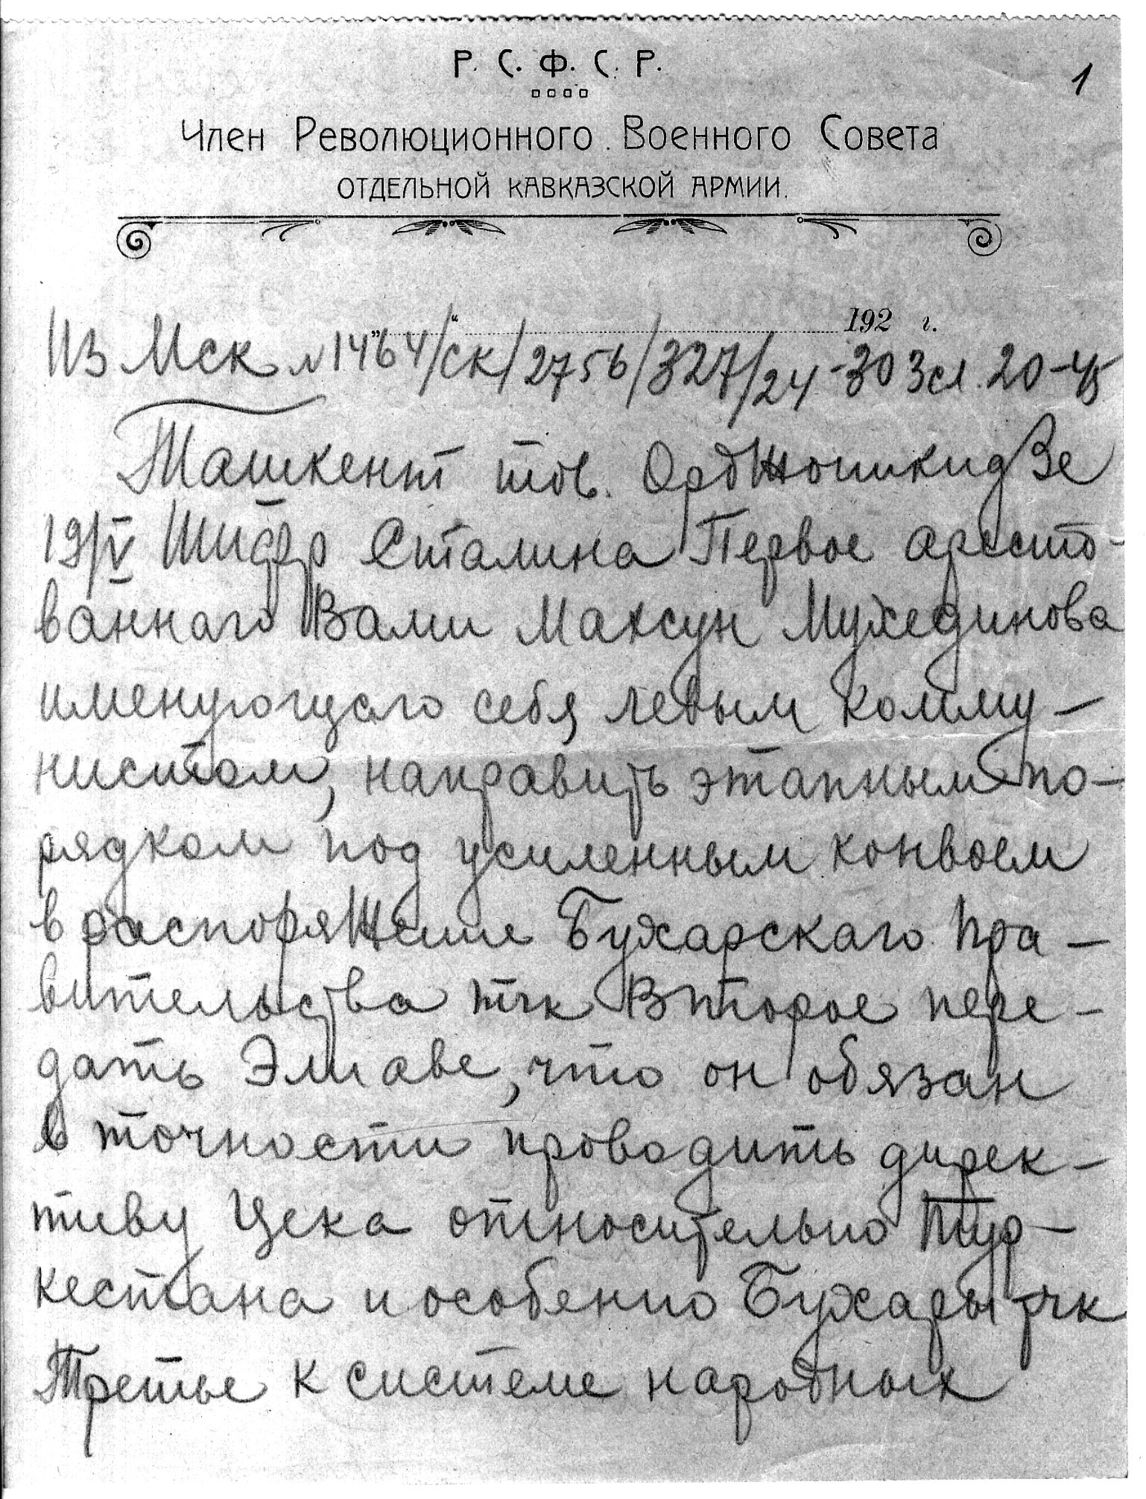 Р. С. Ф. С. Р.
1
Член Революционного Военного Совета
ОТДЕЛЬНОЙ КАВКАЗСКОЙ АРМИИ.
" " 192 г.
Из Мск N 1464/ск/2756/327/24 -30 Зсл. 20-45
Ташкент тов. Орджоникидзе
19/V Шифр Сталина Первое аресто-
ваннаго Вами Махсун Мухединова
именующаго себя левым комму-
нистом, направить этапным по-
рядком под усиленным конвоем
в распоряжение Бухарскаго Пра-
вительства тчк Второе пере-
дать Элиаве, что он обязан
в точности проводить дирек-
тиву Цека относительно Тур-
кестана и особенно Бухары тчк
Третье к системе народных